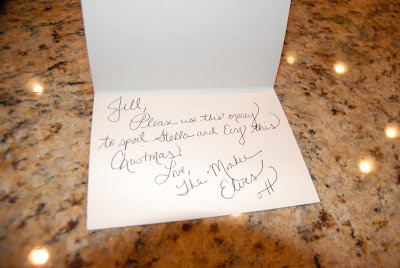 Jill,
Please use this money
to spoil Stella and this
Christmas!
Love,
The
Elves